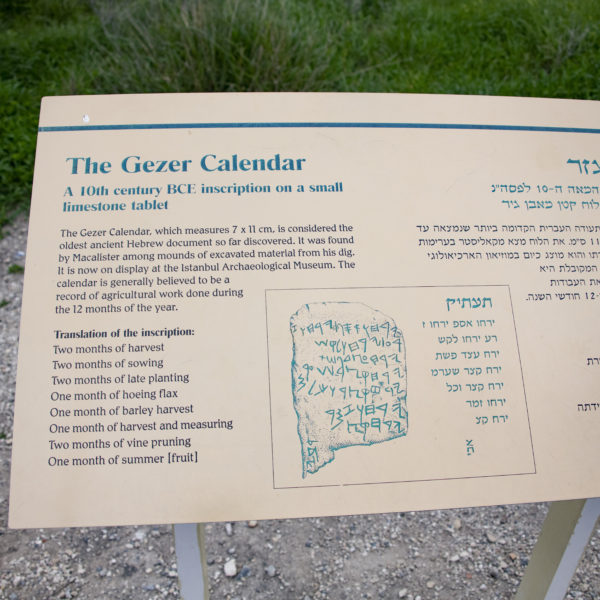 The Gezer Calendar
A 10th century BCE inscription on a small
limestone tablet
The Gezer Calendar, which measures 7 x 11 cm, is considered the
oldest ancient Hebrew document so far discovered. It was found
by Macalister among mounds of excavated material from his dig.
It is now on display at the Istanbul Archaeological Museum. The
calendar is generally believed to be a
record of agricultural work done during
the 12 months of the year.
Translation of the inscription:
Two months of harvest
Two months of sowing
Two months of late planting
One month of hoeing flax
One month of barley harvest
One month of harvest and measuring
Two months of vine pruning
One month of summer [fruit]
תעתיק
ירחו אספ ירחו ז
רע ירחו לקש
ירח עצד פשת
ירח קצר שערמ
ירח קצר וכל
ירחו זמר
ירח קצ
המאה ה-10 לפסה"נ
לוח קטן מאבן גיר
תעודה העברית הקדומה ביותר שנמצאה עד
11 ס"מ. את הלוח מצא מקאליסטר בערימות
והוא מוצג כיום במוזיאון הארכיאולוגי
המקובלת היא
את העבודות
12 חודשי השנה.